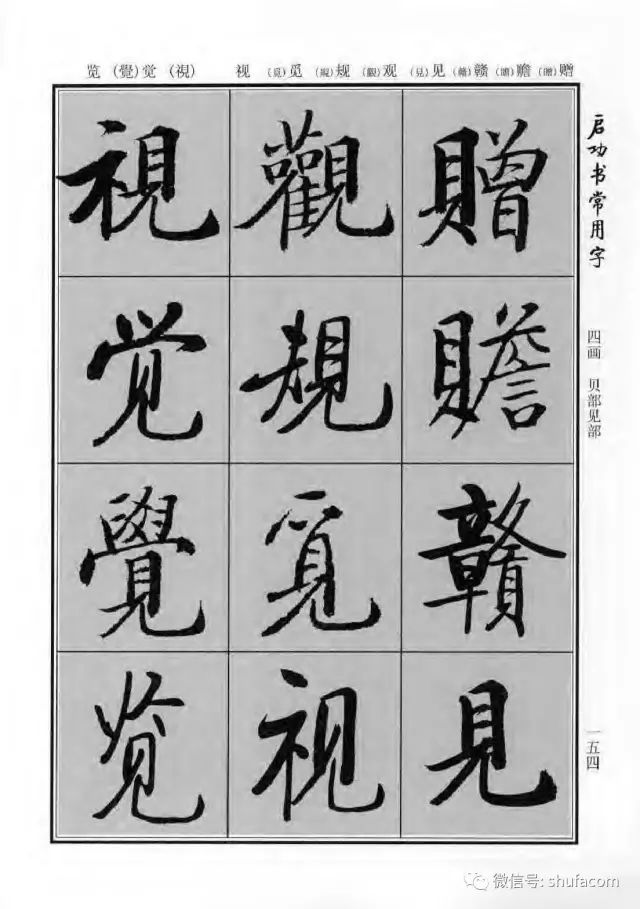 赠(贈)赡(贍)赣(贛)见(見)观(觀)规(規)觅(覓)视 (視)觉(覺)览
启功书常用字
四画 贝部见部
一五四
贈
贍
贛
見
觀
規
覓
视
視
觉
覺
览
微信号: shufacom